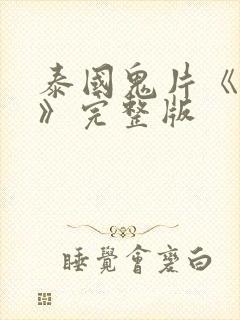 泰國鬼片《
》完整版
睡覺會磨白